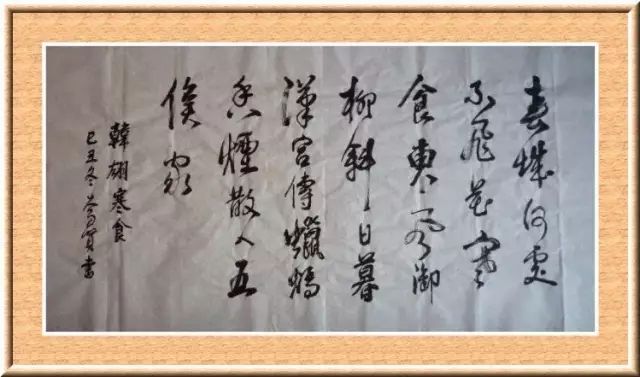 春城何處
不飛花寒
食東風御
柳斜日暮
漢宮傳蠟燭
煙散入五
侯家
韓翃寒食
己丑冬書